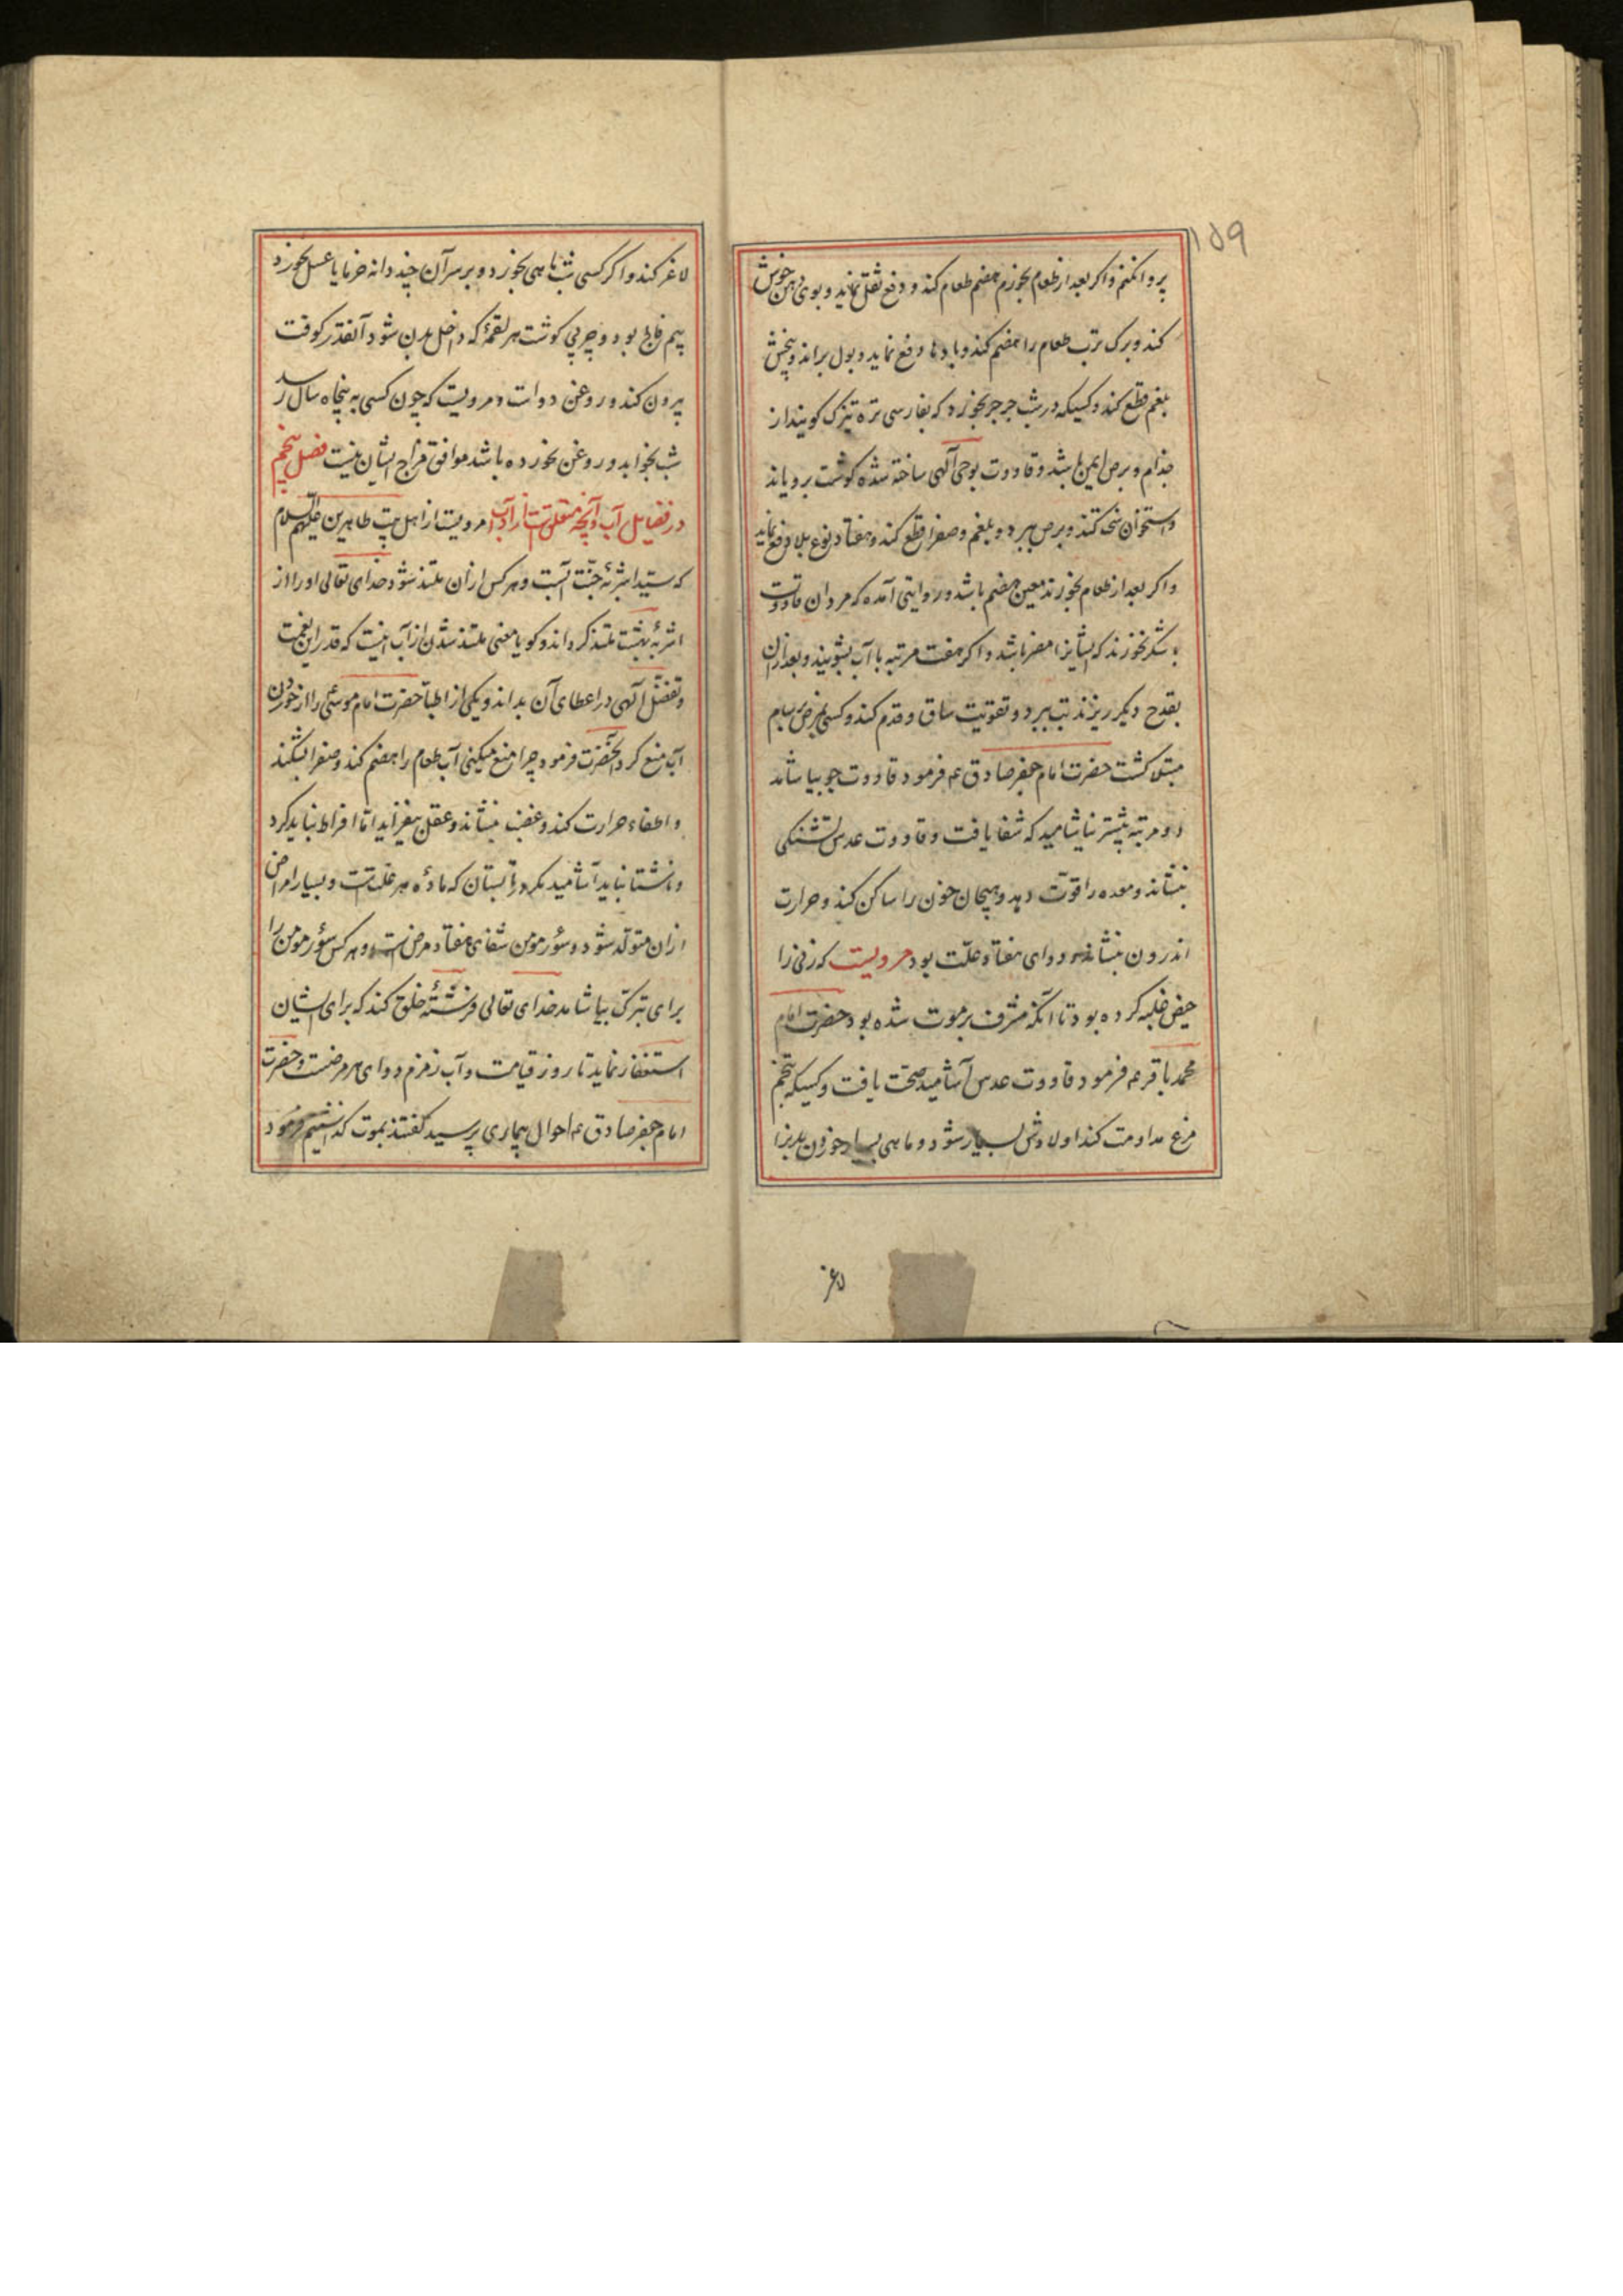 ۱۵۹
پروا نکنم و اگر بعد از طعام بخورم هضم طعام کند و دفع ثقل نماید و بوی دهن خوش
کند و برک ترب طعام را هضم کند و بادها دفع نماید و بول براند و بیخش
بلغم قطع کند و کسیکه در شب جرجیر بخورد که بفارسی تره تیزک کویند از
جذام و برص ایمن باشد و قاووت بوحی آلهی ساخته شده کوشت برویاند
و استخوان سخت کند و برص ببرد و بلغم و صفرا قطع کند و هفتاد نوع بلا دفع نماید
و اکر بعد از طعام بخورند معین هضم باشد و روایتی آمده که مردان قاووت
با شکر نخورند که ایشانرا مضر باشد و اکر هفت مرتبه با آب بشویند و بعد از ان
بقدح دیکر ریزند تب ببرد و تقویت ساق و قدم کند و کسی بمرض سام
مبتلا کشت حضرت امام جعفر صادق ع فرمود قاووت جو بیاشامد
دو مرتبه بیشتر نیاشامید که شفا یافت و قاووت عدس تشنکی
بنشاند و معده را قوت دهد و هیجان خون را ساکن کند و حرارت
اندرون بنشاند و دوای هفتاد علت بود مرویست که زنی را
حیض غلبه کرده بود تا آنکه مشرف بر موت شده بود حضرت امام
محمد باقر ع فرمود قاووت عدس آشامید صحت یافت و کسیکه بتخم
مرغ مداومت کند اولادش بسیار شود و ماهی بسیار خوردن بدنرا
لاغر
لاغر کند و اکر کسی شب ماهی بخورد و بر سر آن چند دانه خرما یا عسل نخورد
بیم فالج بود و چربی کوشت هر لقمهٔ که داخل بدن شود آنقدر کوفت
بیرون کند و روغن دواست و مرویست که چون کسی به پنجاه سال رسد
شب بخوابد و روغن نخورده باشد موافق مزاج ایشان نیست فصل پنجم
در فضایل آب و آنچه متعلقست از آداب مرویست از اهل بیت طاهرین علیهم السلام
که سید اشربهٔ جنت آبست و هر کس از آن ملتذ شود خدای تعالی او را از
اشربهٔ بهشت ملتذ کرداند و کویا معنی ملتذ شدن از آب اینست که قدر این نعمت
و تفضل آلهی در اعطای آن بداند و یکی از اطبا حضرت امام موسی را از خوردن
آب منع کرد آنحضرت فرمود چرا منع میکنی آب طعام را هضم کند و صفرا بشکند
و اطفاء حرارت کند و غضب بنشاند و عقل بیفزاید اما افراط نباید کرد
و ناشتا نباید آشامید مکر در تابستان که مادهٔ هر علتست و بسیار امراض
از ان متولد شود و سؤر مومن شفای هفتاد مرض است و هر کس سؤر مومن را
برای تبرک بیاشامد خدای تعالی فرشتهٔ خلق کند که برای ایشان
استغفار نماید تا روز قیامت و آب زمزم دوای هر مرضست و حضرت
امام جعفر صادق ع احوال بیماری پرسید کفتند بموت فرمود